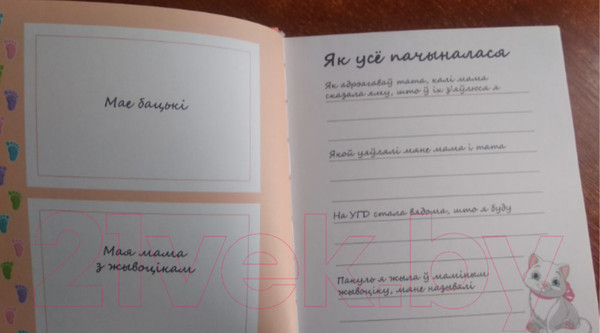 Мае бацькі
Мая мама
з жывоцікам
Як усё пачыналася
Як адрэагаваў тата, калі мама
сказала яму, што ў іх з'яўлюся я
Якой уяўлялі мяне мама і тата
На УГД стала вядома, што я буду
Пакуль я жыла ў маміным
жывоціку, мяне называлі
21vek.by